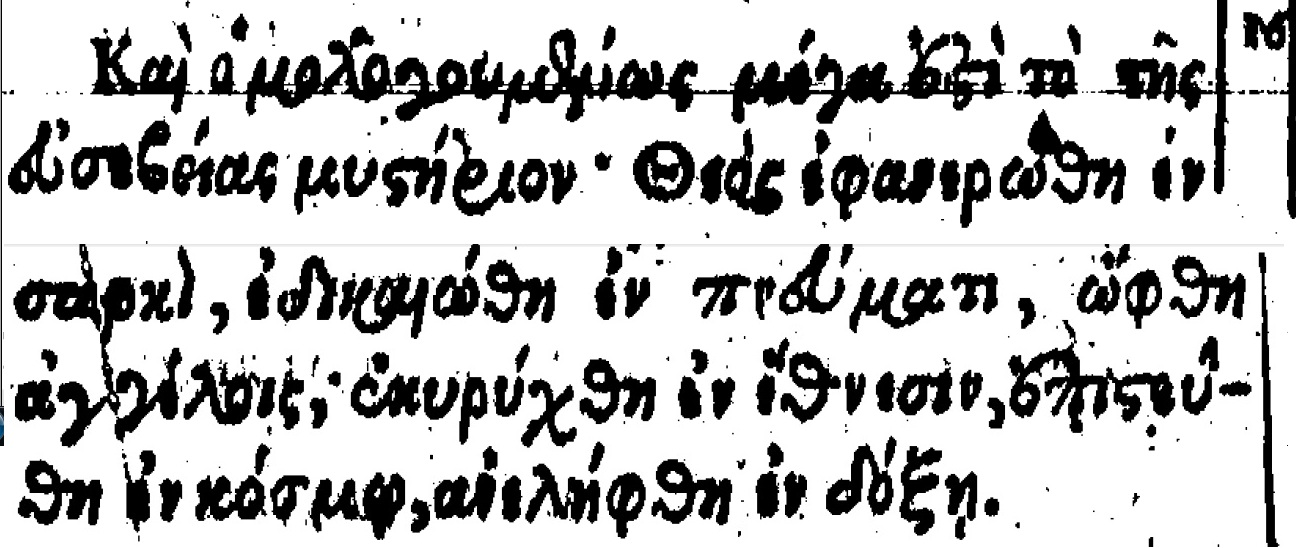 Καὶ ὁμολογουμένως μέγα ἐστὶ τὸ τῆς
εὐσεβείας μυστήριον· Θεὸς ἐφανερώθη ἐν
σαρκὶ, ἐδικαιώθη ἐν πνεύματι, ὤφθη
ἀγγέλοις, ἐκυρύχθη ἐν ἔθνεσιν, ἐπιστεύ-
θη ἐν κόσμῳ, ἀνελήφθη ἐν δόξῃ.